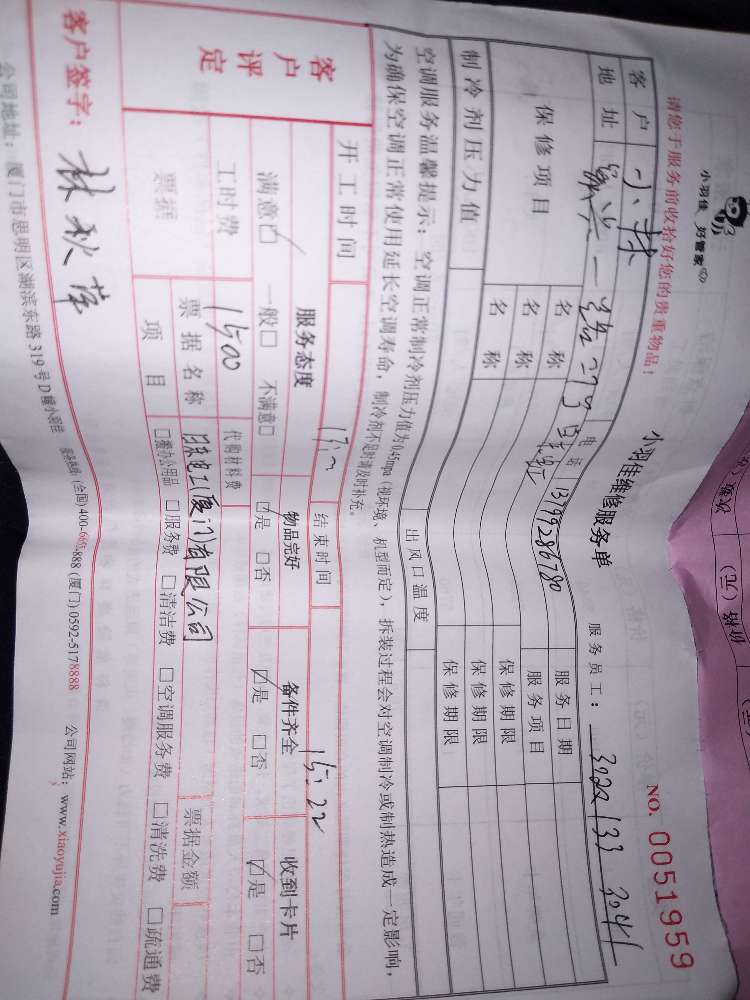 小羽佳 好管家
小羽佳维修服务单
NO. 0051959
请您于服务前收拾好您的贵重物品!
服务员工:
客户 小林 电话 服务日期
地址 服务项目
保修项目 名称 保修期限
名称 保修期限
名称 保修期限
制冷剂压力值 出风口温度
空调服务温馨提示: 空调正常制冷剂压力值为0.45mpa (视环境、机型而定), 拆装过程会对空调制冷或制热造成一定影响,
为确保空调正常使用延长空调寿命, 制冷剂不足时请及时补充。
开工时间 结束时间 15:22
客户评定 服务态度 物品完好 备件齐全 收到卡片
满意☑ 一般□ 不满意□ ☑是 □否 ☑是 □否 ☑是 □否
工时费 1500 代购材料费
票据 票据名称 电工(厦门)有限公司 票据金额
项目 □办公用品 □服务费 □清洁费 □空调服务费 □清洗费 □疏通费
客户签字: 林秋萍
公司地址: 厦门市思明区湖滨东路319号D幢小羽佳 服务热线: (全国) 400-6618888 (厦门) 0592-5178888 公司网站: www.xiaoyujia.com